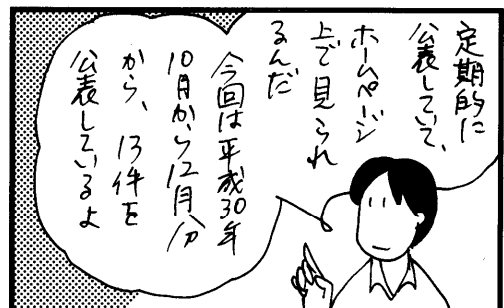 定期的に
公表していて、
ホームページ
上で見られ
るんだ
今回は平成30年
10月から12月分
から、13件を
公表しているよ